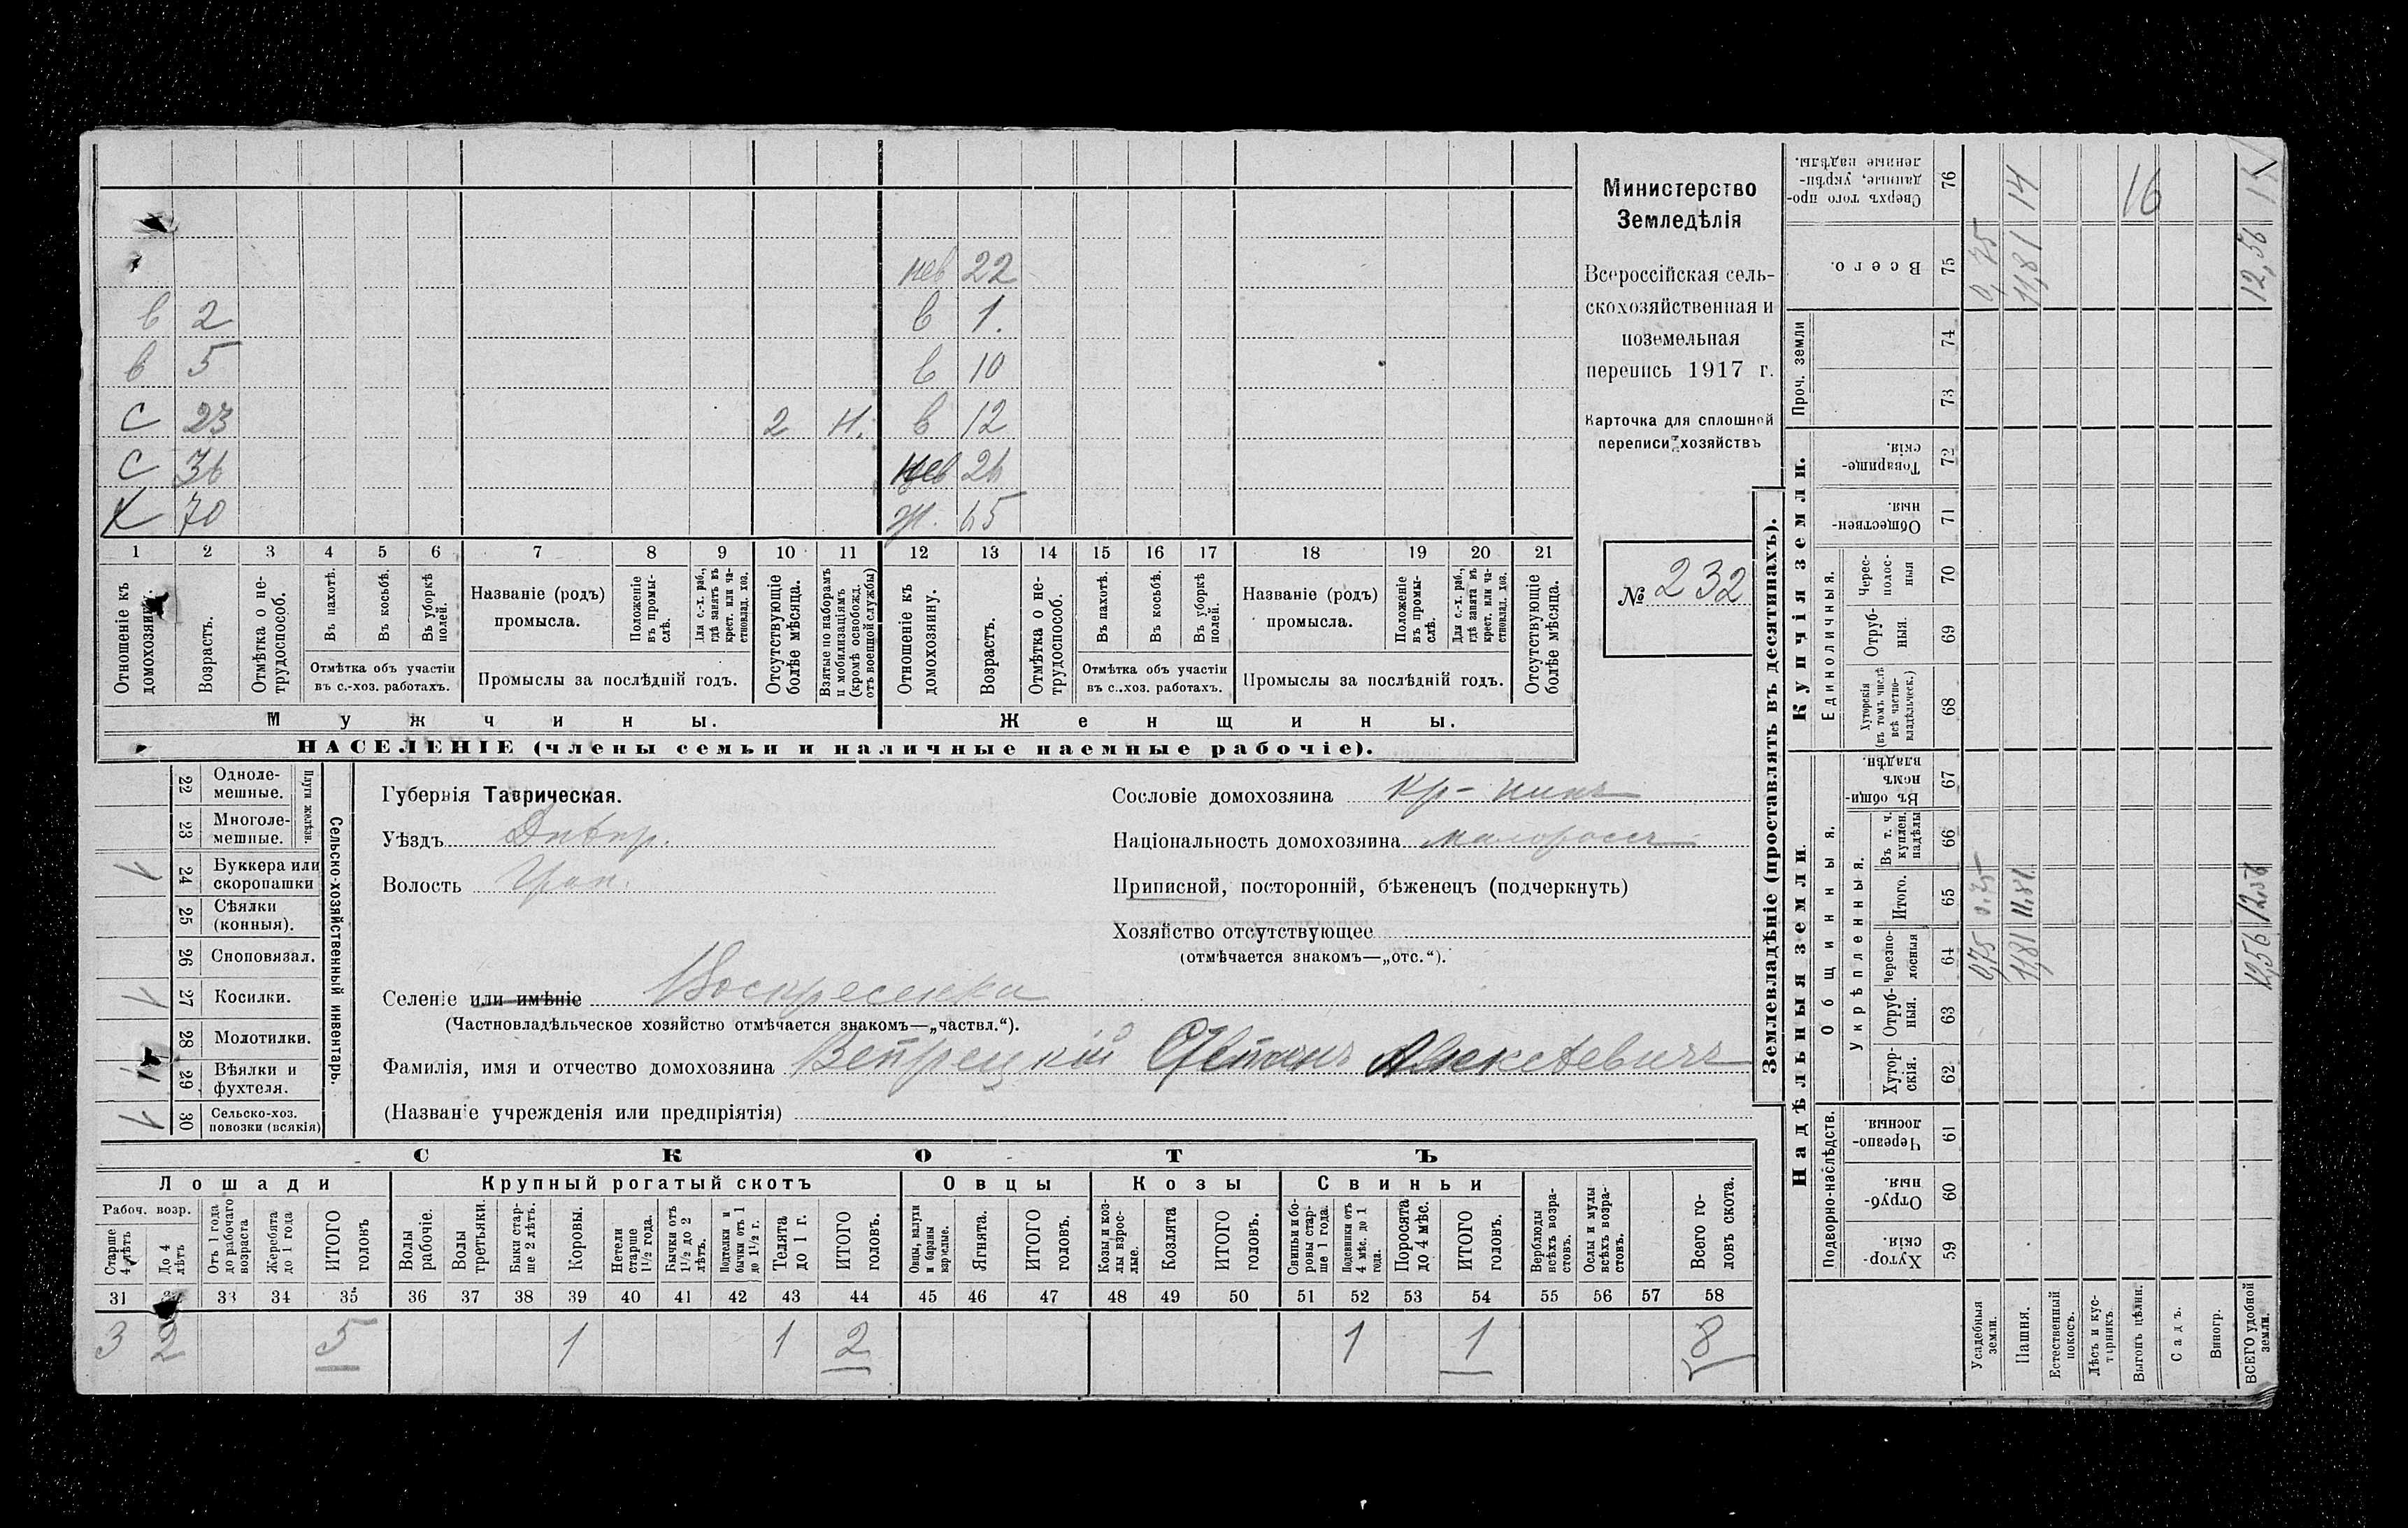 Министерство
Земледѣлія
Всероссійская сель-
скохозяйственная и
поземельная
перепись 1917 г.
Карточка для сплошной
переписи хозяйствъ
№ 232
нев 22
в 2 в 1.
в 5 в 10
С 23 2 Н. в 12
С 36 нев 26
Х 70 ж. 65
1 2 3 4 5 6 7 8 9 10 11 12 13 14 15 16 17 18 19 20 21
Отношеніе къ домохозяину.
Возрастъ.
Отмѣтка о не-трудоспособ.
Въ пахотѣ.
Въ косьбѣ.
Въ уборкѣ полей.
Отмѣтка объ участіи
въ с.-хоз. работахъ.
Названіе (родъ)
промысла.
Положеніе въ промы-слѣ.
Для с.-х. раб., гдѣ занятъ въ крест. или ча-стновлад. хоз.
Промыслы за послѣдній годъ.
Отсутствующіе болѣе мѣсяца.
Взятые по наборамъ и мобилизаціямъ (кромѣ освобожд. отъ военной службы)
Отношеніе къ домохозяину.
Возрастъ.
Отмѣтка о не-трудоспособ.
Въ пахотѣ.
Въ косьбѣ.
Въ уборкѣ полей.
Отмѣтка объ участіи
въ с..хоз. работахъ.
Названіе (родъ)
промысла.
Положеніе въ промы-слѣ.
Для с.-х. раб., гдѣ занята въ крест. или ча-стновлад. хоз.
Промыслы за послѣдній годъ.
Отсутствующіе болѣе мѣсяца.
Мужчины. Женщины.
НАСЕЛЕНІЕ (члены семьи и наличные наемные рабочіе).
Сельско-хозяйственный инвентарь.
Плуги желѣзн.
22 Одноле-
мешные.
23 Многоле-
мешные.
V 24 Буккера или
скоропашки
25 Сѣялки
(конныя).
26 Сноповязал.
V 27 Косилки.
28 Молотилки.
29 Вѣялки и
фухтеля.
V 30 Сельско-хоз.
повозки (всякія)
Губернія Таврическая.
Уѣздъ Днѣпр.
Волость
Сословіе домохозяина Кр-нинъ
Національность домохозяина малороссъ
Приписной, посторонній, бѣженецъ (подчеркнуть)
Хозяйство отсутствующее
(отмѣчается знакомъ—„отс.“).
Селеніе или имѣніе Воскресенка
(Частновладѣльческое хозяйство отмѣчается знакомъ—„частвл.“).
Фамилія, имя и отчество домохозяина Ветрецкій Степанъ Алексѣевичъ
(Названіе учрежденія или предпріятія)
СКОТЪ
Лошади Крупный рогатый скотъ Овцы Козы Свиньи
Рабоч. возр.
Старше 4 лѣтъ
До 4 лѣтъ
Отъ 1 года до рабочаго возраста
Жеребята до 1 года
ИТОГО головъ
Волы рабочіе.
Волы третьяки.
Быки стар-ше 2 лѣтъ.
Коровы.
Нетели старше 1½ года.
Бычки отъ 1½ до 2 лѣтъ.
Подтелки и бычки отъ 1 до 1½ г.
Телята до 1 г.
ИТОГО головъ.
Овцы, валухи и бараны взрослые.
Ягнята.
ИТОГО головъ.
Козы и коз-лы взрос-лые.
Козлята
ИТОГО головъ.
Свиньи и бо-ровы стар-ше 1 года.
Подсвинки отъ 4 мѣс. до 1 года.
Поросята до 4 мѣс.
ИТОГО головъ.
Верблюды всѣхъ возра-стовъ.
Ослы и мулы всѣхъ возра-стовъ.
Всего го-ловъ скота.
31 32 33 34 35 36 37 38 39 40 41 42 43 44 45 46 47 48 49 50 51 52 53 54 55 56 57 58
3 2 5 1 1 2 1 1 8
Землевладѣніе (проставлять въ десятинахъ).
Надѣльныя земли
Купчія земли.
Проч. земли
Подворно-наслѣдств.
Общинныя.
Укрѣпленныя.
Единоличныя.
Хутор-скія. 59
Отруб-ныя. 60
Черезпо-лосныя 61
Хутор-скія. 62
Отруб-ныя. 63
Черезпо-лосныя 64
Итого. 65
Въ т. ч. куплен. надѣлы 66
Въ общин-номъ владѣн. 67
Хуторскія (въ томъ числѣ всѣ частно-владѣльческ.) 68
Отруб-ныя. 69
Черес-полос-ныя 70
Обществен-ныя. 71
Товарище-скія 72
73
74
Всего. 75
Сверхъ того про-данные, укрѣп-ленные надѣлы. 76
Усадебныя земли. 0,75 0,75 0,75
Пашня. 11,81 11,81 11,81 14
Естественный покосъ.
Лѣсъ и кус-тарникъ.
Выгонъ цѣлин. 16
Садъ.
Виногр.
ВСЕГО удобной земли. 12,56 12,56 12,56